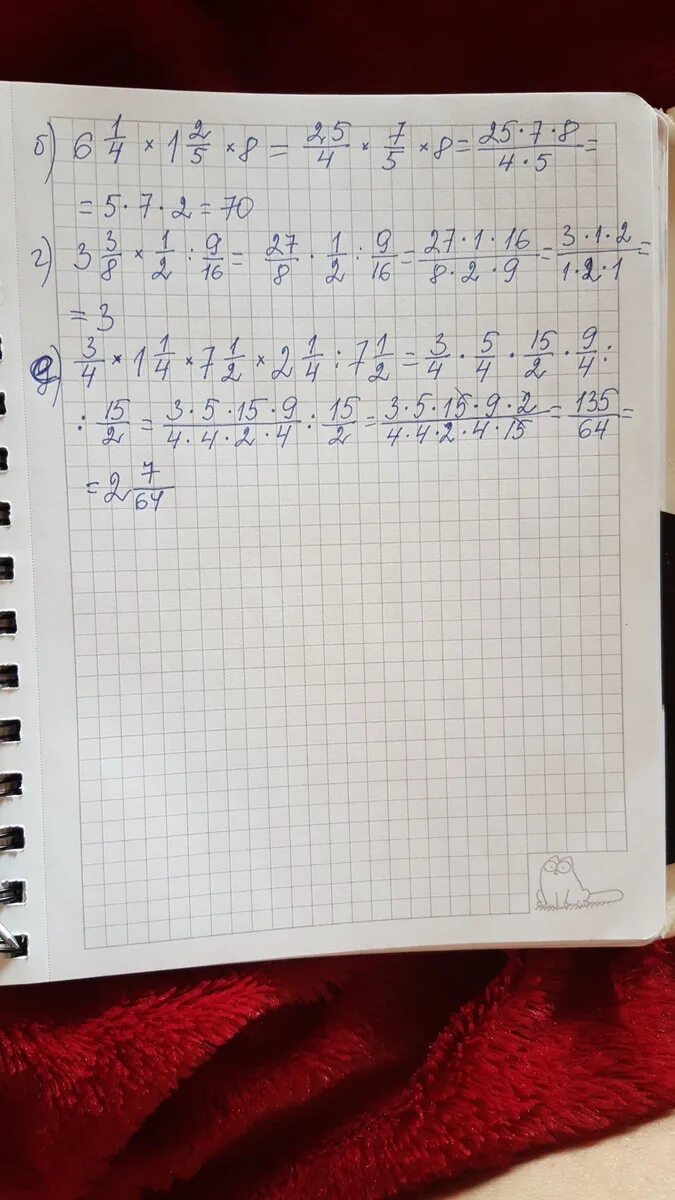 б) 6 1/4 × 1 2/5 × 8 = 25/4 × 7/5 × 8 = (25·7·8)/(4·5) =
= 5·7·2 = 70
г) 3 3/8 × 1/2 : 9/16 = 27/8 · 1/2 : 9/16 = (27·1·16)/(8·2·9) = (3·1·2)/(1·2·1) =
= 3
д) 3/4 × 1 1/4 × 7 1/2 × 2 1/4 : 7 1/2 = 3/4 · 5/4 · 15/2 · 9/4 :
: 15/2 = (3·5·15·9)/(4·4·2·4) : 15/2 = (3·5·15·9·2)/(4·4·2·4·15) = 135/64 =
= 2 7/64